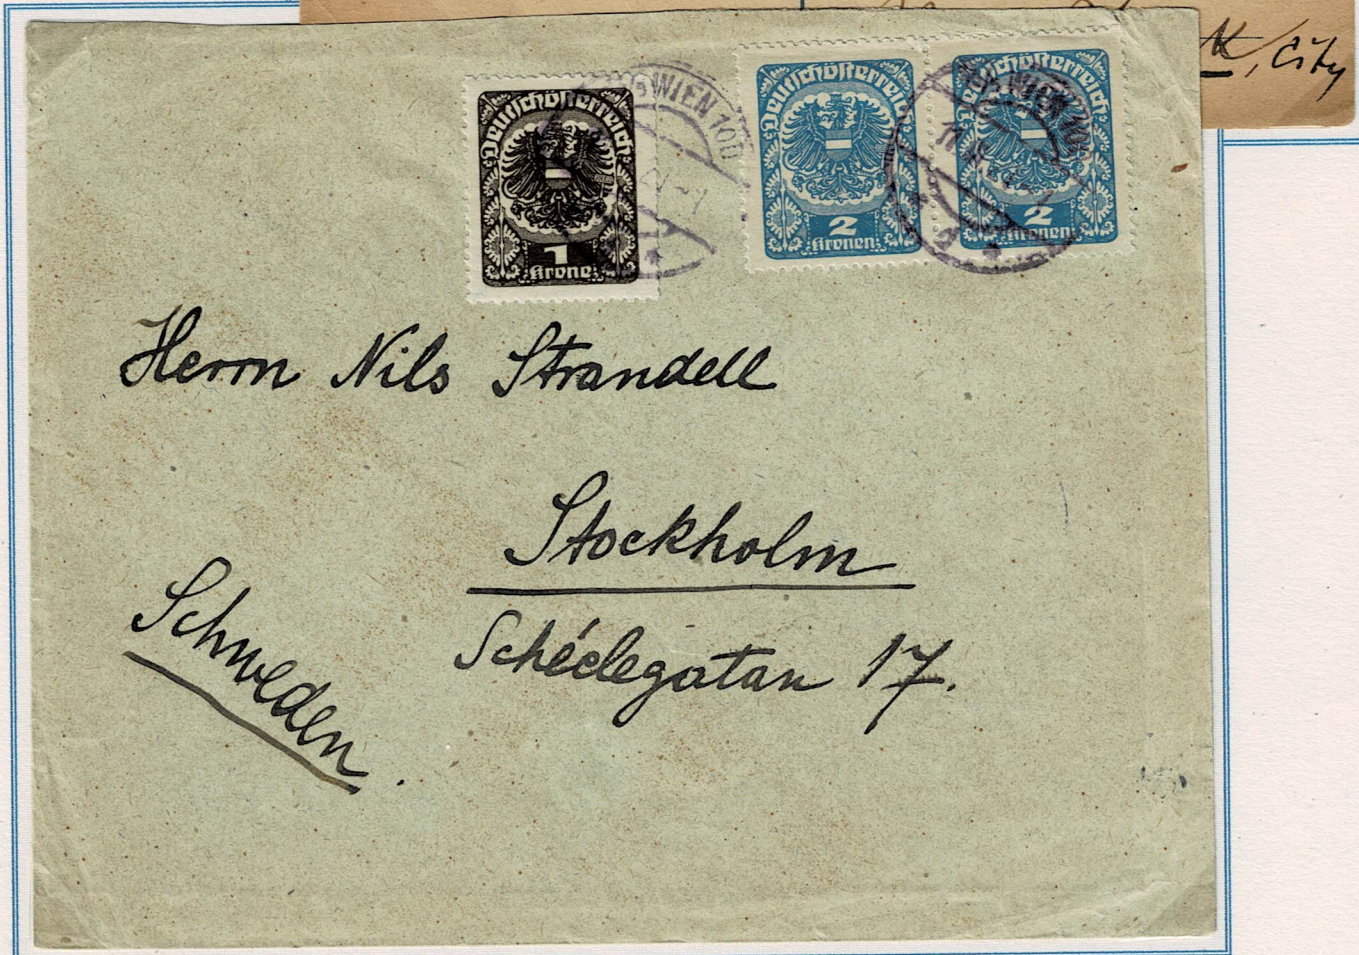 K, City
Deutschösterreich
1
Krone
WIEN 100
Deutschösterreich
2
Kronen
Deutschösterreich
2
Kronen
WIEN 100
Herrn Nils Strandell
Stockholm
Schéelegatan 17.
Schweden.